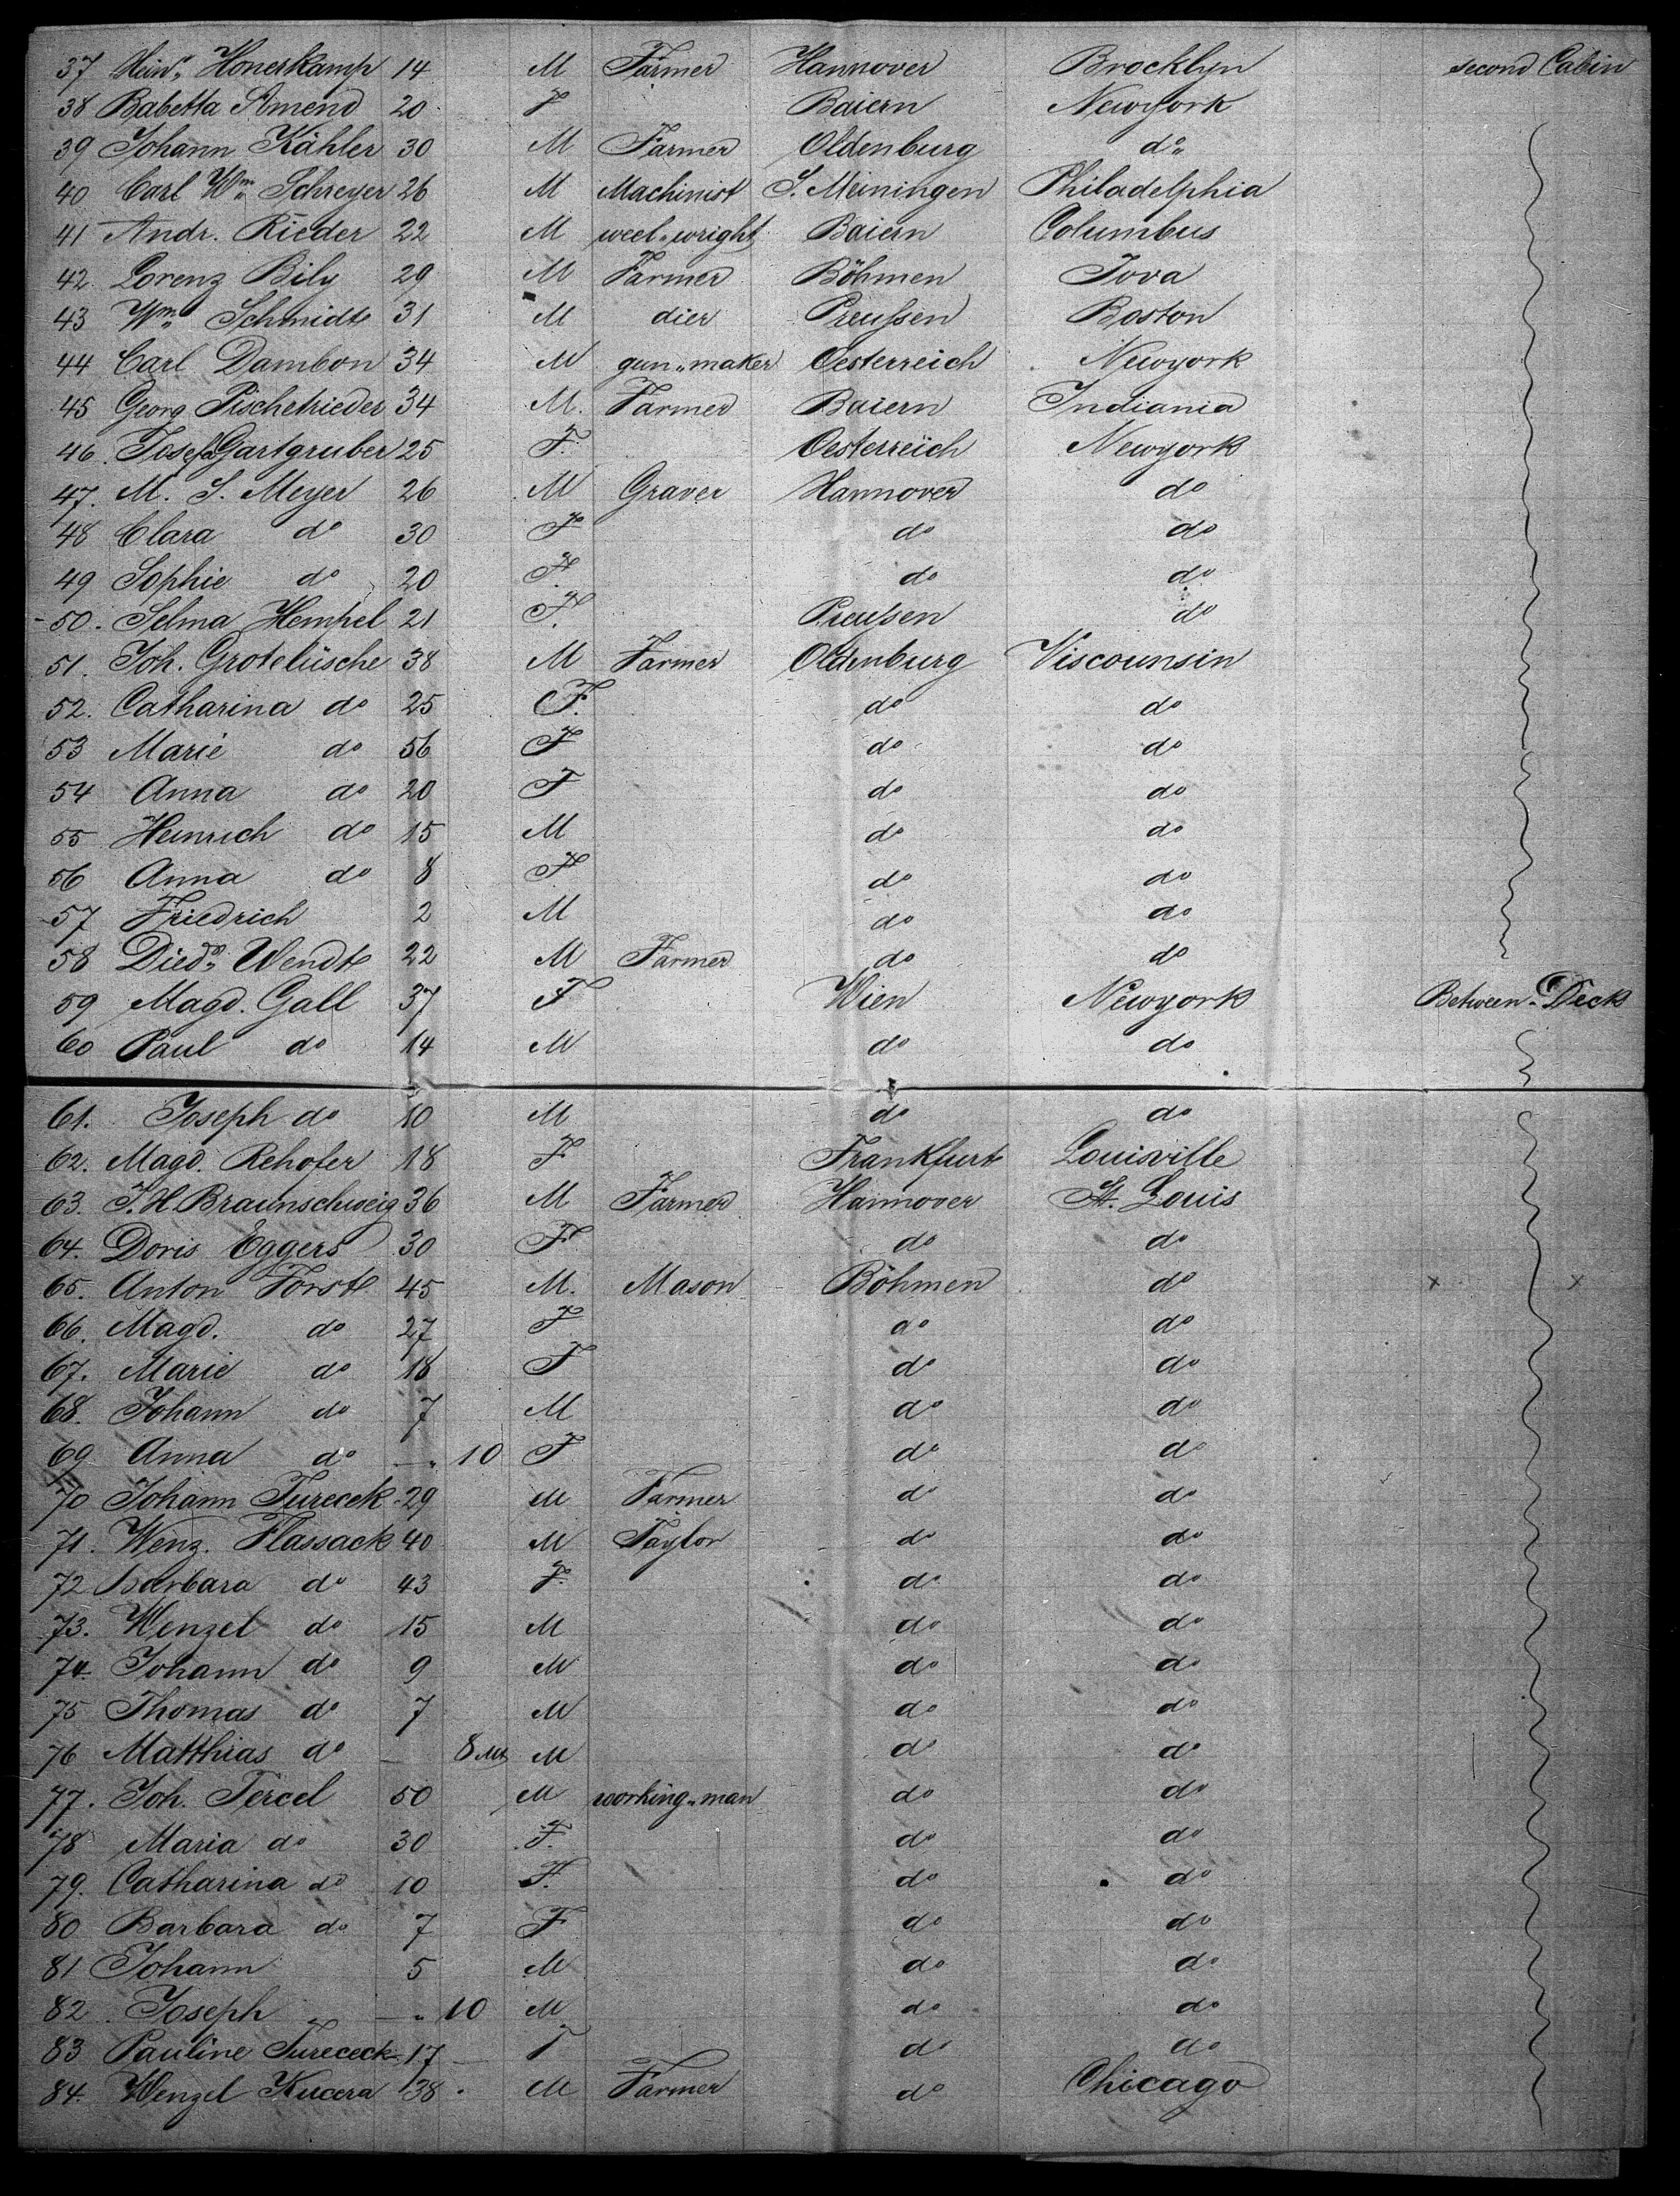 37 Heinr. Honerkamp 14 M Farmer Hannover Brocklyn second Cabin
38 Babetta Amend 20 F Baiern Newyork
39 Johann Kähler 30 M Farmer Oldenburg do
40 Carl Wm Schreyer 26 M Machinist S. Meiningen Philadelphia
41 Andr. Rieder 22 M weel-wright Baiern Columbus
42 Lorenz Bily 29 M Farmer Böhmen Iova
43 Wm Schmidt 31 M dier Preussen Boston
44 Carl Dambon 34 M gun-maker Oesterreich Newyork
45 Georg Pischetrieder 34 M. Farmer Baiern Indiania
46. Josefa Gartgruber 25 F. Oesterreich Newyork
47. M. S. Meyer 26 M Graver Hannover do
48 Clara do 30 F do do
49 Sophie do 20 F. do do
50. Selma Hempel 21 F. Preussen do
51. Joh. Grotelüsche 38 M Farmer Oldenburg Viscounsin
52. Catharina do 25 F. do do
53 Marie do 56 F do do
54 Anna do 20 F do do
55 Heinrich do 15 M do do
56 Anna do 8 F do do
57 Friedrich 2 M do do
58 Diedr. Wendt 22 M Farmer do do
59 Magd. Gall 37 F Wien Newyork Between-Deck
60 Paul do 14 M do do
61. Joseph do 10 M do do
62. Magd. Rehofer 18 F Frankfurt Louisville
63. J. H. Braunschweig 36 M Farmer Hannover St. Louis
64. Doris Eggers 30 F do do
65. Anton Forst 45 M. Mason Böhmen do x x
66. Magd. do 27 F do do
67. Marie do 18 F do do
68. Johann do 7 M do do
69 Anna do — 10 F do do
70 Johann Turececk 29 M Farmer do do
71. Wenz. Flassack 40 M Taylor do do
72 Barbara do 43 F. do do
73. Wenzel do 15 M do do
74. Johann do 9 M do do
75 Thomas do 7 M do do
76 Matthias do — 8 Mt M do do
77. Joh. Tercel 50 M working-man do do
78 Maria do 30 F. do do
79. Catharina do 10 F. do do
80 Barbara do 7 F do do
81 Johann 5 M do do
82. Joseph — 10 M do do
83 Pauline Turececk 17 F do do
84. Wenzel Kucera 38 M Farmer do Chicago